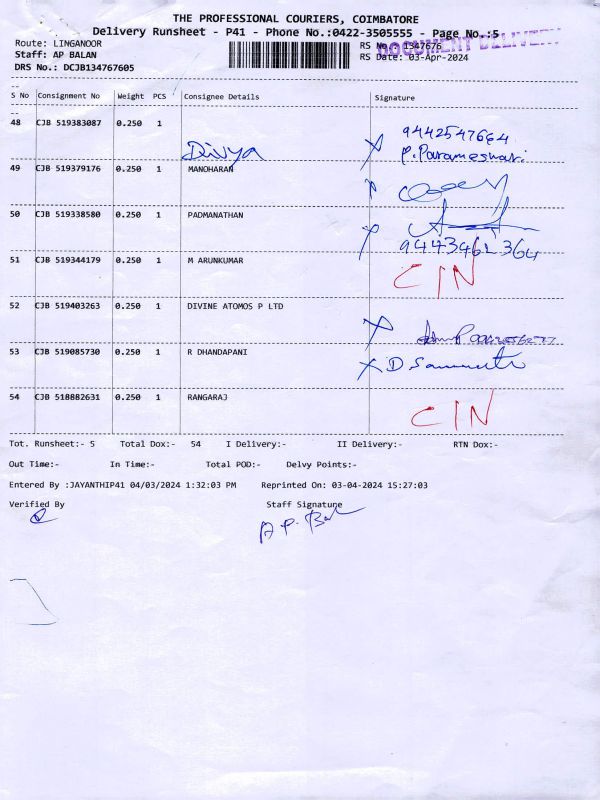 THE PROFESSIONAL COURIERS, COIMBATORE
Delivery Runsheet - P41 - Phone No.:0422-3505555 - Page No.:5
Route: LINGANOOR RS No.: 1347676
DOCUMENT DELIVERY
Staff: AP BALAN RS Date: 03-Apr-2024
DRS No.: DCJB134767605
--
S No Consignment No Weight PCS Consignee Details Signature
--
48 CJB 519383087 0.250 1 Divya 9442547664
P. Parameshwari
49 CJB 519379176 0.250 1 MANOHARAN
50 CJB 519338580 0.250 1 PADMANATHAN
51 CJB 519344179 0.250 1 M ARUNKUMAR CIN
52 CJB 519403263 0.250 1 DIVINE ATOMOS P LTD
53 CJB 519085730 0.250 1 R DHANDAPANI D
54 CJB 518882631 0.250 1 RANGARAJ CIN
Tot. Runsheet:- 5 Total Dox:- 54 I Delivery:- II Delivery:- RTN Dox:-
Out Time:- In Time:- Total POD:- Delvy Points:-
Entered By :JAYANTHIP41 04/03/2024 1:32:03 PM Reprinted On: 03-04-2024 15:27:03
Verified By Staff Signature
A P. Bal